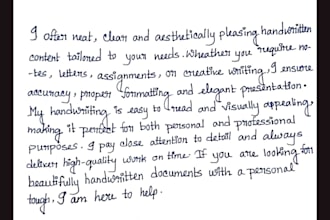 I offer neat, clean and aesthetically pleasing handwritten
content tailored to your needs. Wheather you require no-
-tes, letters, assignments, or creative writing, I ensure
accuracy, proper formatting and elegant presentation.
My handwriting is easy to read and visually appealing,
making it perfect for both personal and professional
purposes. I pay close attention to detail and always
deliver high-quality work on time. If you are looking for
beautifully handwritten documents with a personal
tough, I am here to help.